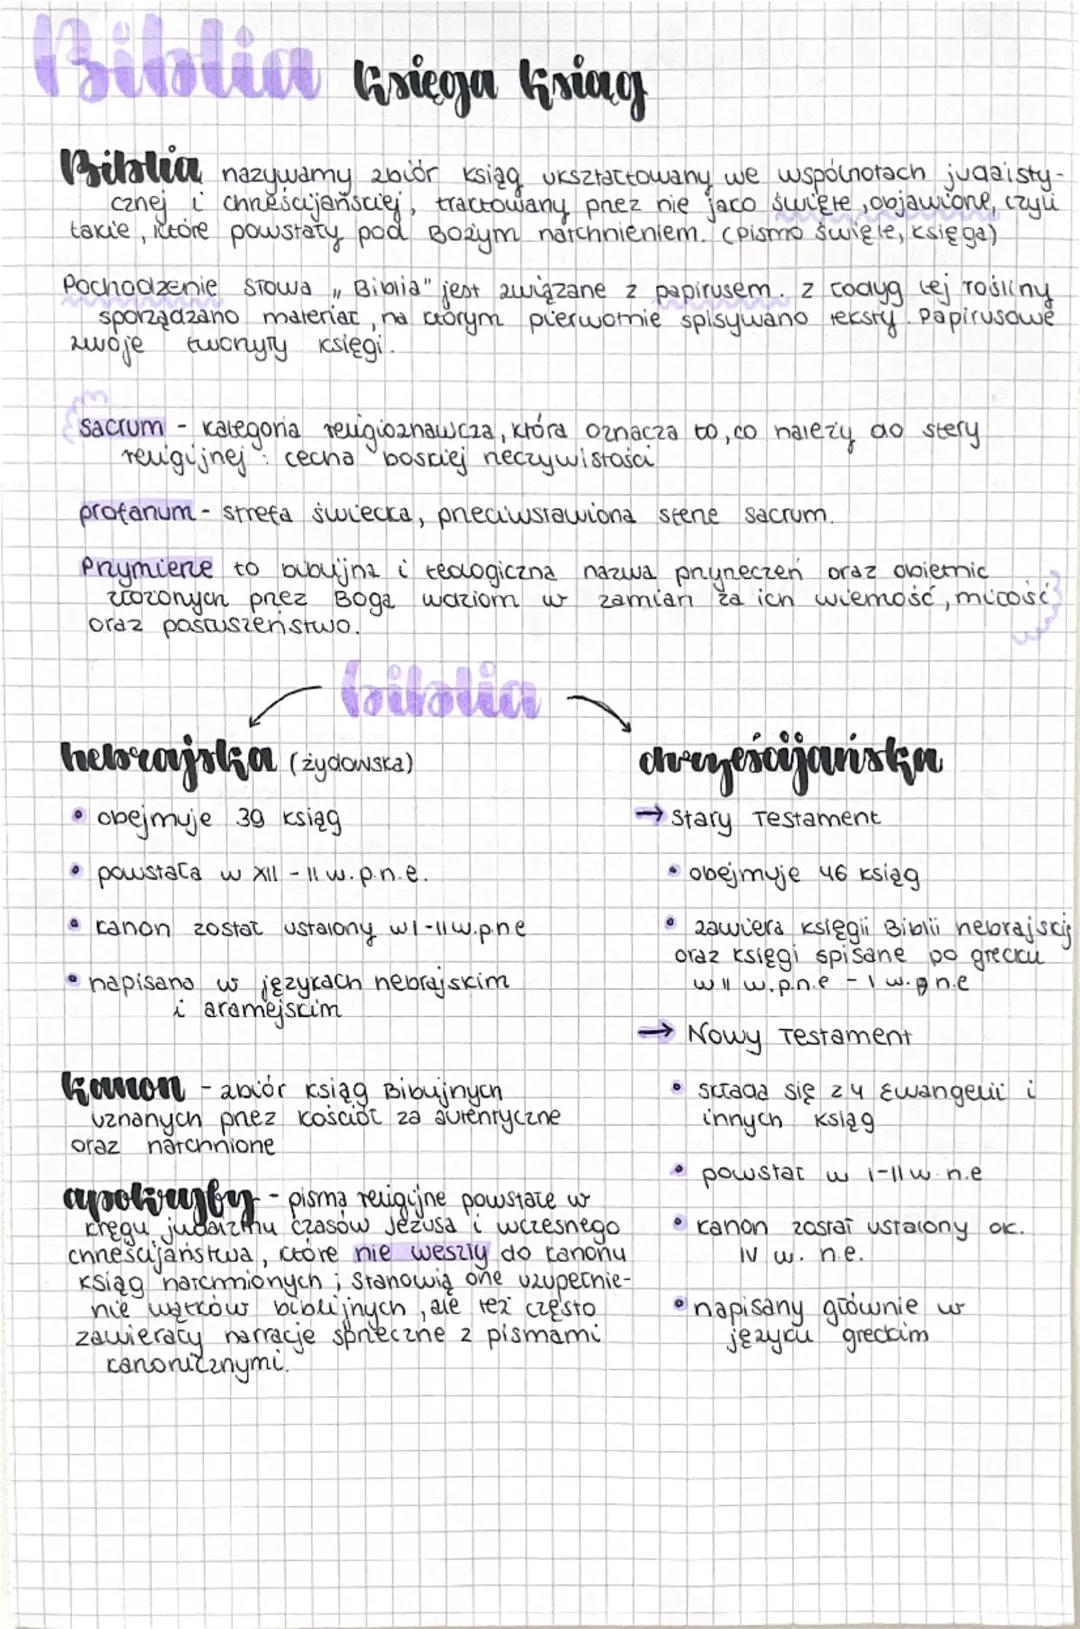 Biblia Księga ksiąg
Biblia nazywamy zbiór ksiąg ukształtowany we wspólnotach judaisty-
cznej i chrześcijańskiej, traktowany przez nie jako święte, objawione, czyli
takie, które powstały pod Bożym natchnieniem. (pismo święte, księga)
Pochodzenie słowa „Biblia" jest związane z papirusem. z łodyg tej rośliny
sporządzano materiał, na którym pierwotnie spisywano teksty. Papirusowe
zwoje tworzyły księgi.
sacrum - kategoria religioznawcza, która oznacza to, co należy do sfery
religijnej: cecha boskiej rzeczywistości
profanum - strefa świecka, przeciwstawiona sferze sacrum.
Przymierze to biblijna i teologiczna nazwa przyrzeczeń oraz obietnic
złożonych przez Boga ludziom w zamian za ich wierność, miłość
oraz posłuszeństwo.
biblia
hebrajska (żydowska)
• obejmuje 39 ksiąg
• powstała w XII - II w. p.n.e.
• kanon został ustalony w I-II w.p.n.e
• napisano w językach hebrajskim
i aramejskim
kanon - zbiór ksiąg Biblijnych
uznanych przez kościół za autentyczne
oraz natchnione
apokryfy - pisma religijne powstałe w
kręgu judaizmu czasów Jezusa i wczesnego
chrześcijaństwa, które nie weszły do kanonu
ksiąg natchnionych; stanowią one uzupełnie-
nie wątków biblijnych, ale też często
zawierały narracje sprzeczne z pismami
kanonicznymi.
chrześcijańska
→ Stary Testament
• obejmuje 46 ksiąg
• zawiera księgii Biblii hebrajskiej
oraz księgi spisane po grecku
w II w.p.n.e - I w. p.n.e
→ Nowy Testament
• składa się z 4 Ewangelii i
innych ksiąg
• powstał w I-II w. n.e
• kanon został ustalony ok.
IV w. n.e.
• napisany głównie w
języku greckim